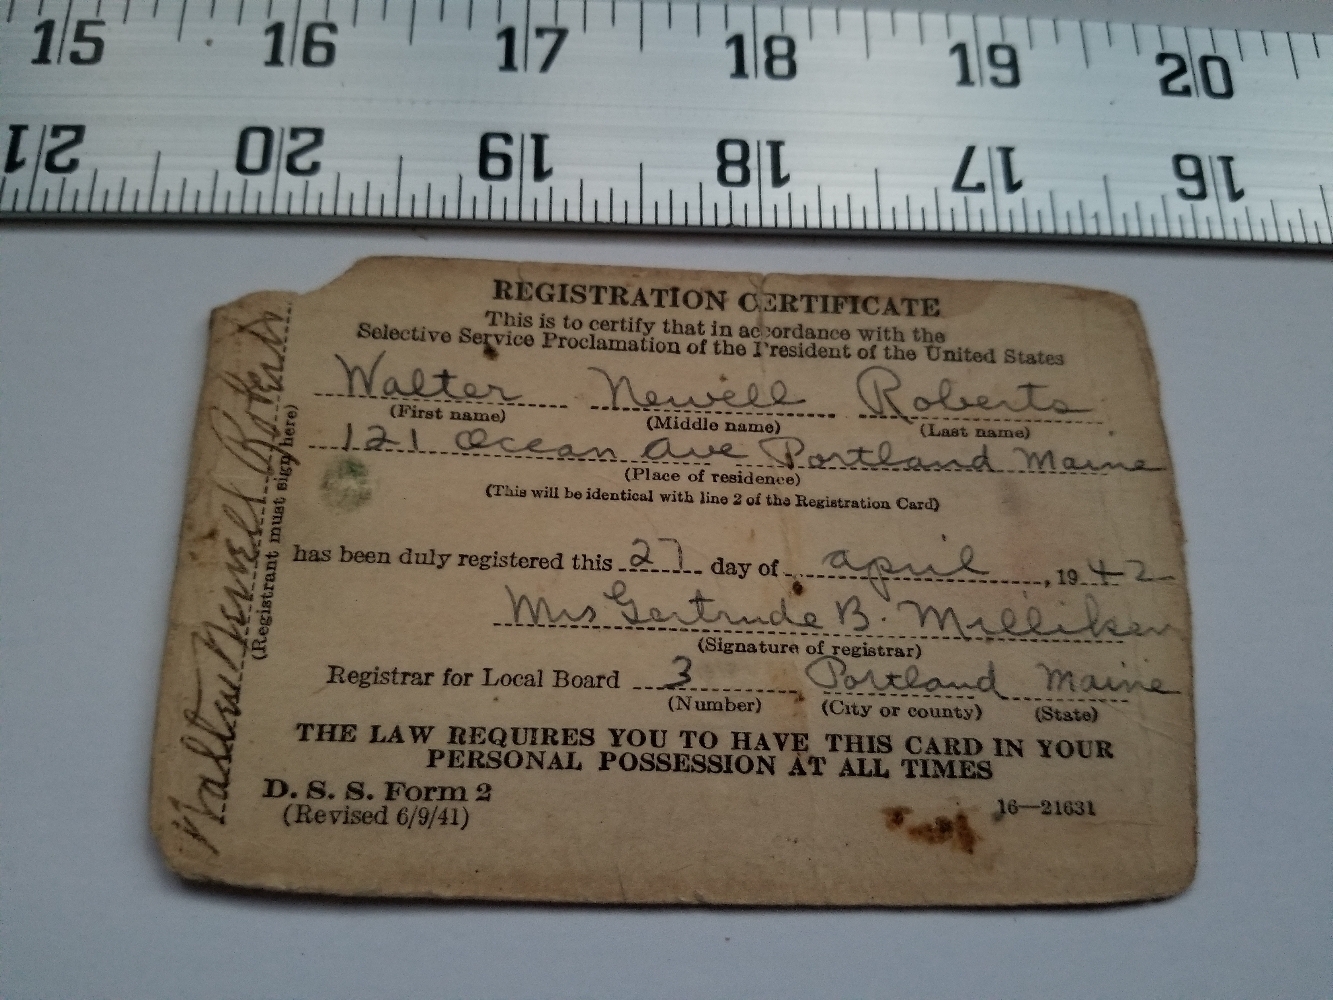 15 16 17 18 19 20
21 20 19 18 17 16
REGISTRATION CERTIFICATE
This is to certify that in accordance with the
Selective Service Proclamation of the President of the United States
Walter Newell Roberts
(First name) (Middle name) (Last name)
121 Ocean Ave Portland Maine
(Place of residence)
(This will be identical with line 2 of the Registration Card)
has been duly registered this 27 day of april, 1942
Mrs Gertrude B. Milliken
(Signature of registrar)
Registrar for Local Board 3 Portland Maine
(Number) (City or county) (State)
THE LAW REQUIRES YOU TO HAVE THIS CARD IN YOUR
PERSONAL POSSESSION AT ALL TIMES
D. S. S. Form 2
(Revised 6/9/41)
16—21631
Walter Newell Roberts
(Registrant must sign here)